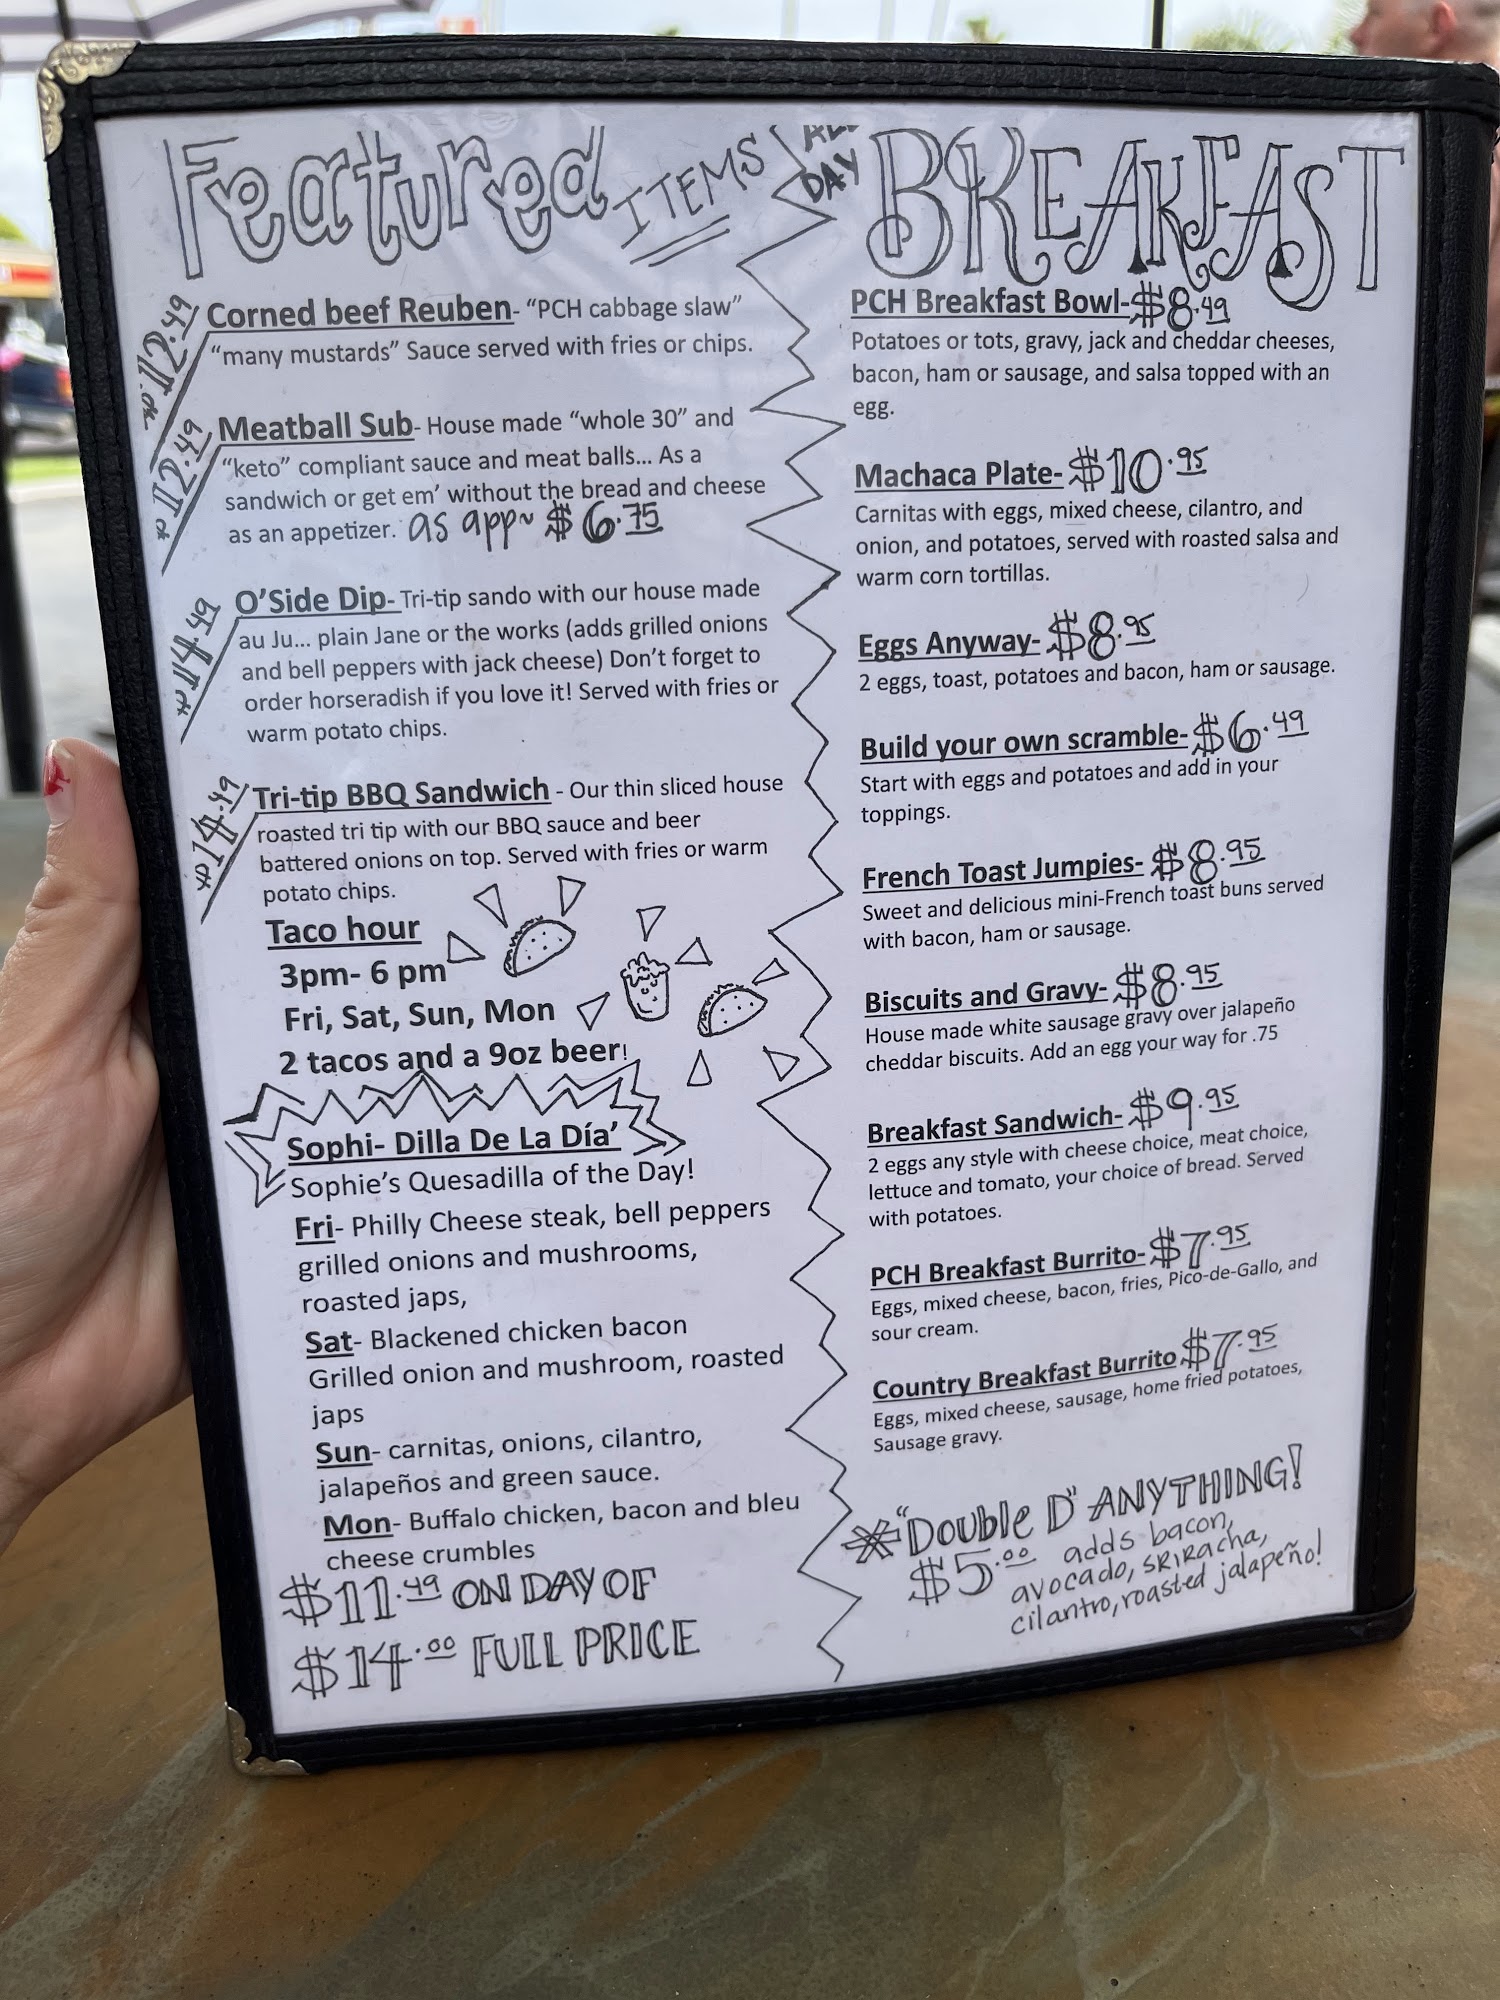 Featured ITEMS
$12.49
Corned beef Reuben- “PCH cabbage slaw”
“many mustards” Sauce served with fries or chips.
$12.49
Meatball Sub- House made “whole 30” and
“keto” compliant sauce and meat balls... As a
sandwich or get em’ without the bread and cheese
as an appetizer. as app~ $6.75
$14.49
O’Side Dip- Tri-tip sando with our house made
au Ju... plain Jane or the works (adds grilled onions
and bell peppers with jack cheese) Don’t forget to
order horseradish if you love it! Served with fries or
warm potato chips.
$14.49
Tri-tip BBQ Sandwich - Our thin sliced house
roasted tri tip with our BBQ sauce and beer
battered onions on top. Served with fries or warm
potato chips.
Taco hour
3pm- 6 pm
Fri, Sat, Sun, Mon
2 tacos and a 9oz beer!
Sophi- Dilla De La Día’
Sophie’s Quesadilla of the Day!
Fri- Philly Cheese steak, bell peppers
grilled onions and mushrooms,
roasted japs,
Sat- Blackened chicken bacon
Grilled onion and mushroom, roasted
japs
Sun- carnitas, onions, cilantro,
jalapeños and green sauce.
Mon- Buffalo chicken, bacon and bleu
cheese crumbles
$11.49 ON DAY OF
$14.00 FULL PRICE
ALL
DAY
BREAKFAST
PCH Breakfast Bowl-$8.49
Potatoes or tots, gravy, jack and cheddar cheeses,
bacon, ham or sausage, and salsa topped with an
egg.
Machaca Plate-$10.95
Carnitas with eggs, mixed cheese, cilantro, and
onion, and potatoes, served with roasted salsa and
warm corn tortillas.
Eggs Anyway-$8.95
2 eggs, toast, potatoes and bacon, ham or sausage.
Build your own scramble-$6.49
Start with eggs and potatoes and add in your
toppings.
French Toast Jumpies-$8.95
Sweet and delicious mini-French toast buns served
with bacon, ham or sausage.
Biscuits and Gravy-$8.95
House made white sausage gravy over jalapeño
cheddar biscuits. Add an egg your way for .75
Breakfast Sandwich-$9.95
2 eggs any style with cheese choice, meat choice,
lettuce and tomato, your choice of bread. Served
with potatoes.
PCH Breakfast Burrito-$7.95
Eggs, mixed cheese, bacon, fries, Pico-de-Gallo, and
sour cream.
Country Breakfast Burrito $7.95
Eggs, mixed cheese, sausage, home fried potatoes,
Sausage gravy.
*“Double D” ANYTHING!
$5.00 adds bacon,
avocado, SRIRACHA,
cilantro, roasted jalapeño!